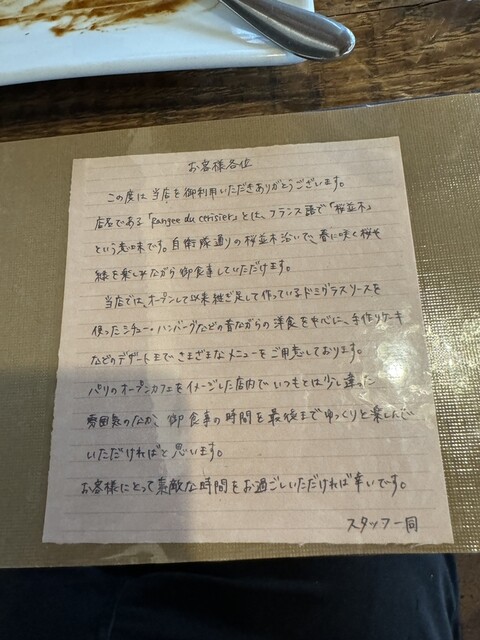 お客様各位
この度は当店を御利用いただきありがとうございます。
店名である「Rangee du cerisier」とは、フランス語で「桜並木」
という意味です。自衛隊通りの桜並木沿いで、春に咲く桜や
緑を楽しみながら御食事していただけます。
当店では、オープンして以来継ぎ足して作っているドミグラスソースを
使ったシチュー・ハンバーグなどの昔ながらの洋食を中心に、手作りケーキ
などのデザートまでさまざまなメニューをご用意しております。
パリのオープンカフェをイメージした店内でいつもとは少し違った
雰囲気のなか、御食事の時間を最後までゆっくりと楽しんで
いただければと思います。
お客様にとって素敵な時間をお過ごしいただければ幸いです。
スタッフ一同